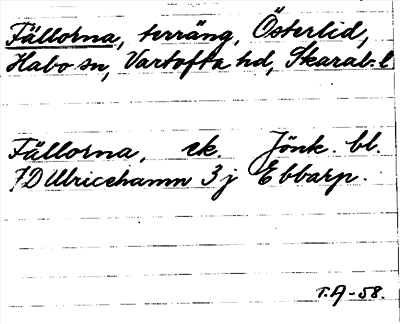 Fällorna, terräng, Österlid,
Habo sn, Vartofta hd, Skarab. l
Fällorna, ek. Jönk. bl.
7D Ulricehamn 3j Ebbarp.
T.A-58.